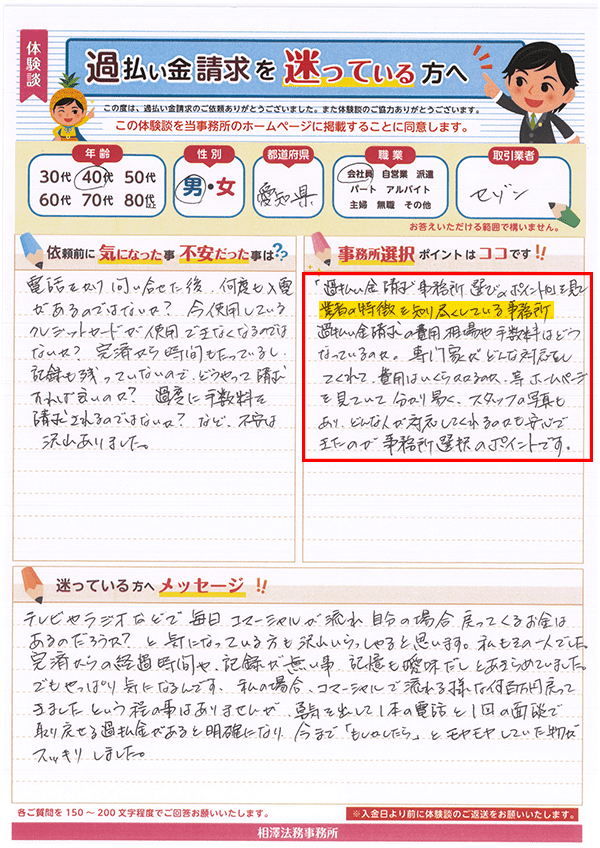 体験談
過払い金請求を迷っている方へ
この度は、過払い金請求のご依頼ありがとうございました。また体験談のご協力ありがとうございます。
この体験談を当事務所のホームページに掲載することに同意します。
年齢
30代 40代 50代
60代 70代 80代以上
性別
男・女
都道府県
愛知県
職業
会社員 自営業 派遣
パート アルバイト
主婦 無職 その他
取引業者
セゾン
お答えいただける範囲で構いません。
依頼前に気になった事 不安だった事は??
電話をかけ問い合せた後、何度も入電
があるのではないか? 今使用している
クレジットカードが使用できなくなるのでは
ないか? 完済から時間もたっているし、
記録も残っていないので、どうやって請求
すれば良いのか? 過度に手数料を
請求されるのではないか? など、不安は
沢山ありました。
事務所選択ポイントはココです!!
「過払い金請求で事務所選びのポイントは」を見て
業者の特徴を知り尽くしている事務所
過払い金請求の費用相場や手数料はどう
なっているのか。専門家がどんな対応をし
てくれて、費用はいくらかかるのか、等 ホームページ
を見ていて分かり易く、スタッフの写真も
あり、どんな人が対応してくれるのかも安心で
きたのが事務所選択のポイントです。
迷っている方へメッセージ!!
テレビやラジオなどで毎日コマーシャルが流れ自分の場合戻ってくるお金は
あるのだろうか? と気になっている方も沢山いらっしゃると思います。私もその一人でした。
完済からの経過時間や、記録が無い事 記憶も曖昧だしとあきらめていました。
でもやっぱり気になるんです。私の場合、コマーシャルで流れる様な何百万円戻って
きましたという程の事はありませんが、勇気を出して1本の電話と1回の面談で
取り戻せる過払金があると明確になり、今まで「もしかしたら」とモヤモヤしていた物が
スッキリしました。
各ご質問を150〜200文字程度でご回答お願いいたします。
※入金日より前に体験談のご返送をお願いいたします。
相澤法務事務所